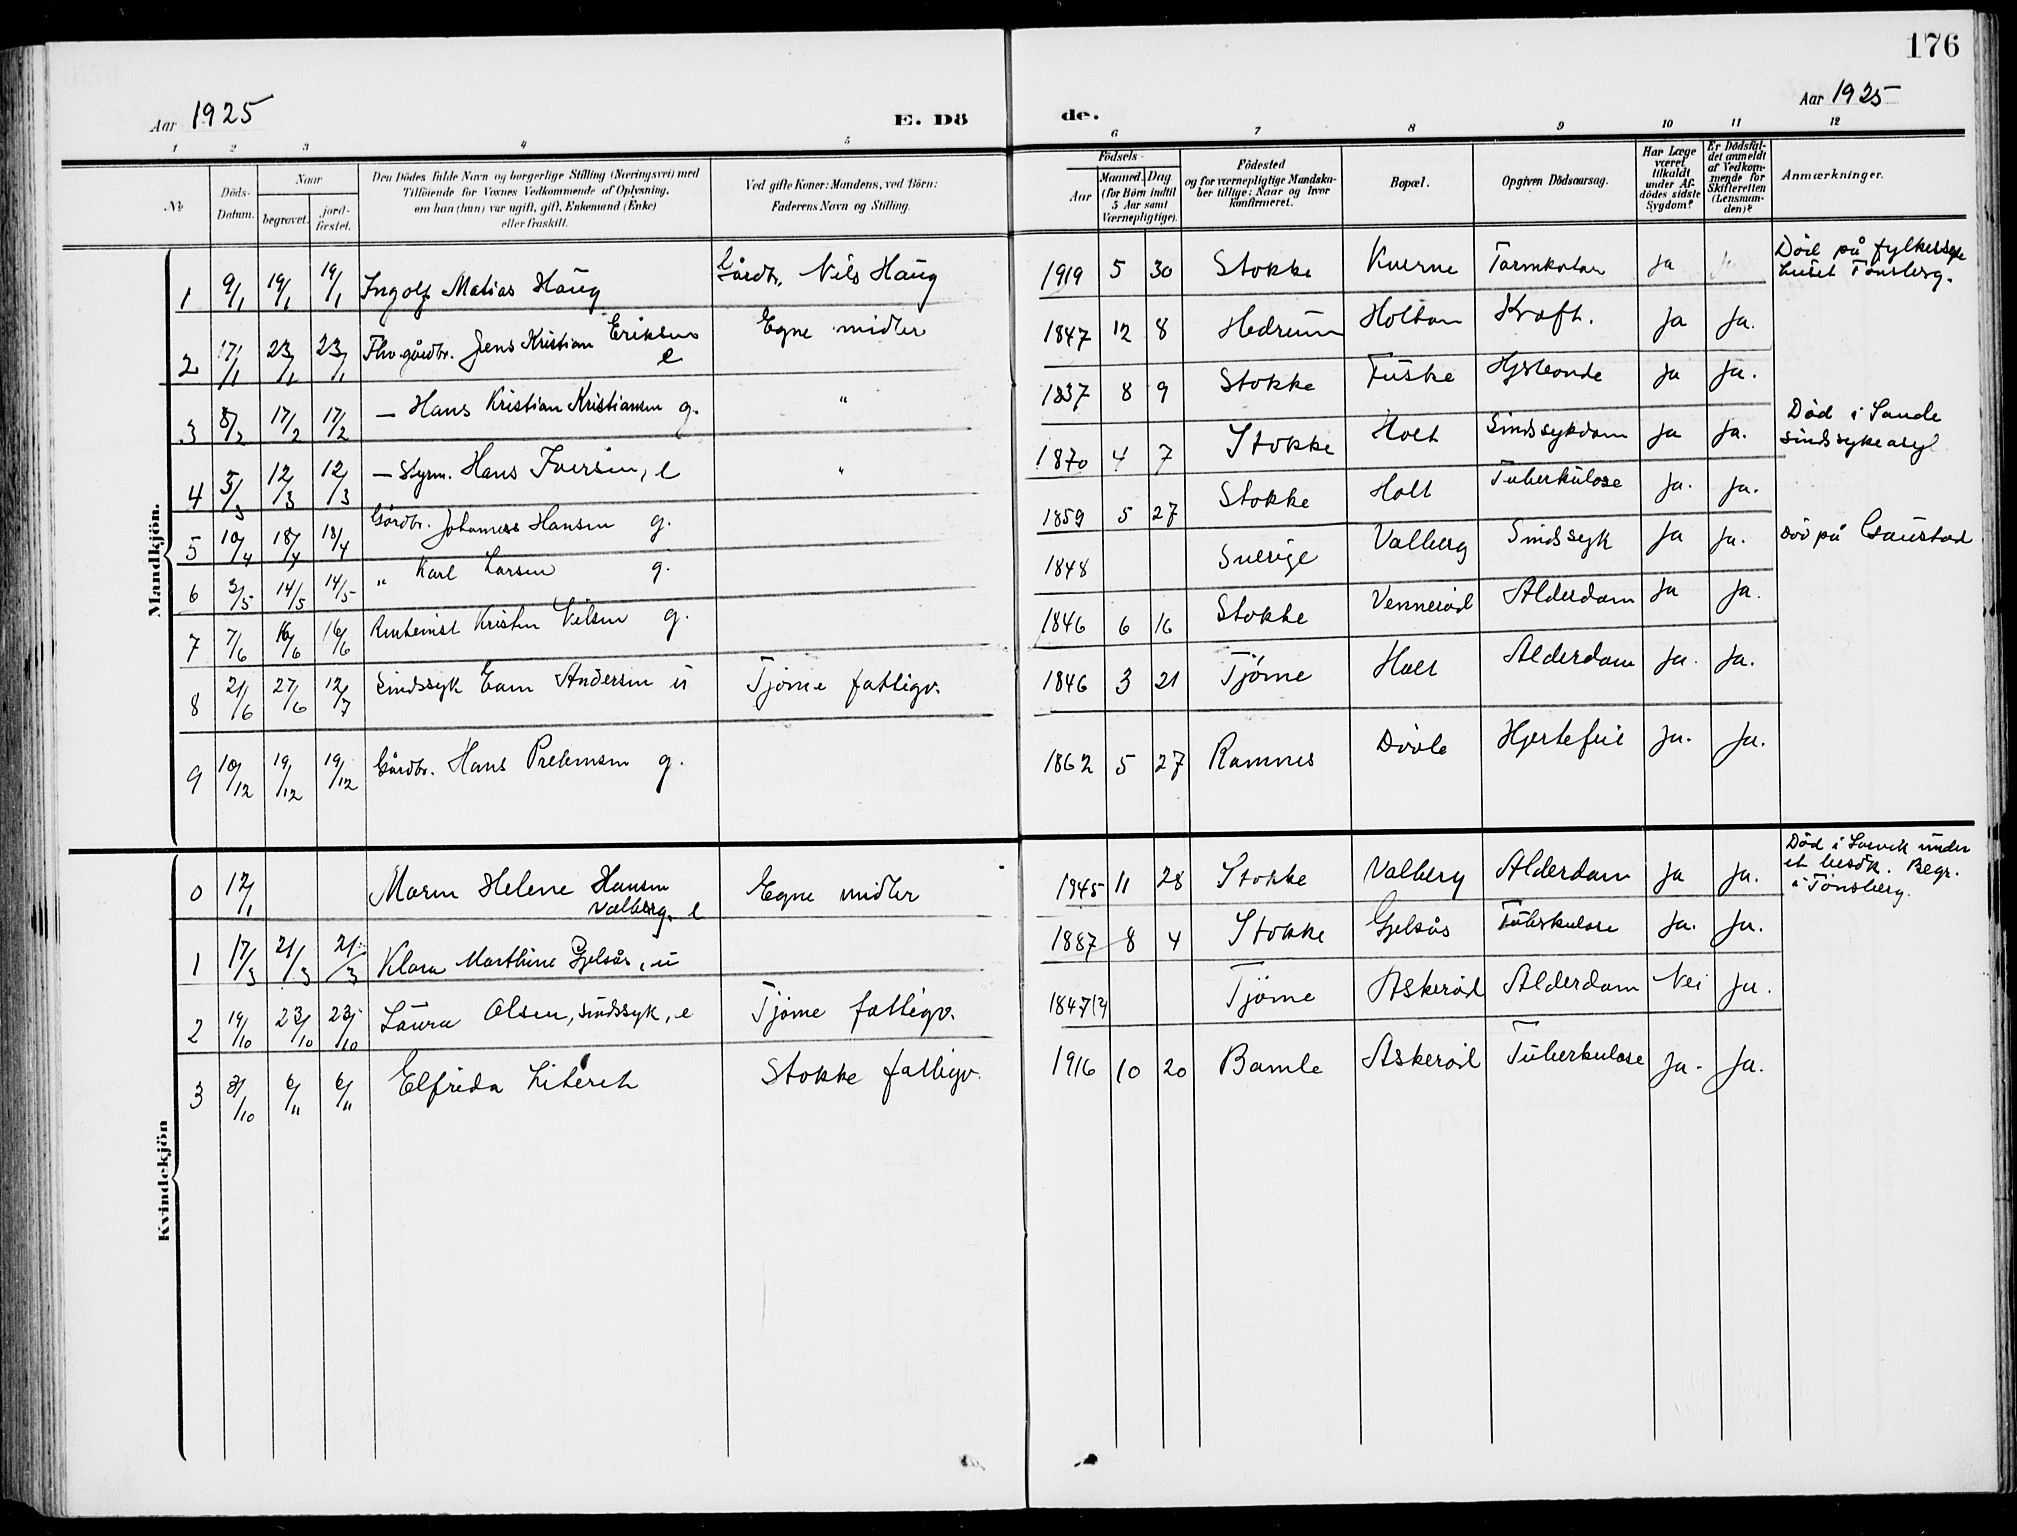 176
Aar 1925
E. Dö
de.
Aar 1925
1 2 3 4 5 6 7 8 9 10 11 12
№
Döds-Datum.
Naar
begravet.
jord-fæstet.
Den Dödes fulde Navn og borgerlige Stilling (Næringsvei) med
Tilföiende for Voxnes Vedkommende af Oplysning,
om han (hun) var ugift, gift, Enkemand (Enke)
eller fraskilt.
Ved gifte Koner: Mandens, ved Börn:
Faderens Navn og Stilling.
Födsels-
Aar
Maaned. Dag.
(for Börn indtil
5 Aar samt
Værnepligtige).
Födested
og for værnepligtige Mandska-
ber tillige: Naar og hvor
konfirmeret.
Bopæl.
Opgiven Dödsaarsag.
Har Læge
været
tilkaldt
under Af-
dödes sidste
Sygdom?
Er Dödsfal-
det anmeldt
af Vedkom-
mende for
Skifteretten
(Lensman-
den)?
Anmærkninger.
Mandkjön.
1 9/1 19/1 19/1 Ingolf Matias Haug Gårdbr. Nils Haug 1919 5 30 Stokke Kverne Tarmkatar ja Död på fylkessyke
huset Tønsberg.
2 17/1 23/1 23/1 Fhv. gårdbr. Jens Kristian Eriksen e Egne midler 1847 12 8 Hedrum Holtan Kræft. ja ja.
3 8/2 17/2 17/2 — Hans Kristian Kristiansen g. " 1837 8 9 Stokke Fuske ja ja.
4 5/3 12/3 12/3 — Styrm. Hans Iversen, e " 1870 4 7 Stokke Holt Sindssykdom ja ja. Död i Sande
sindssykeasyl
5 10/4 18/4 18/4 Gårdbr. Johannes Hansen g. 1859 5 27 Stokke Holt Tuberkulose ja. ja.
6 3/5 14/5 14/5 " Karl Larsen g. 1848 Sverige Valberg Sindssyk ja ja. Död på Gaustad
7 7/6 16/6 16/6 Rentenist Kristen Nilsen g. 1846 6 16 Stokke Vennerød Alderdom ja ja.
8 21/6 27/6 12/7 Sindssyk Even Andersen u Tjøme fattigv. 1846 3 21 Tjøme Holt Alderdom ja. ja.
9 10/12 19/12 19/12 Gårdbr. Hans Pretensen g. 1862 5 27 Ramnes Døvle Hjertefeil ja. ja.
Kvindekjön
0 12/1 Maren Helene Hansen
Valberg e Egne midler 1945 11 28 Stokke Valberg Alderdom ja ja. Død i Larvik under
et besök. Begr.
i Tönsberg.
1 17/3 21/3 21/3 Klara Marthine Gjelsås, u 1887 8 4 Stokke Gjelsås Tuberkulose ja. ja.
2 19/10 23/10 23/10 Laura Olsen, sindssyk, e Tjøme fattigv. 1847(?) Tjøme Askerød Alderdom Nei ja.
3 31/10 6/11 6/11 Elfrida Stokke fattigv. 1916 10 20 Bamle Askerød Tuberkulose ja. ja.